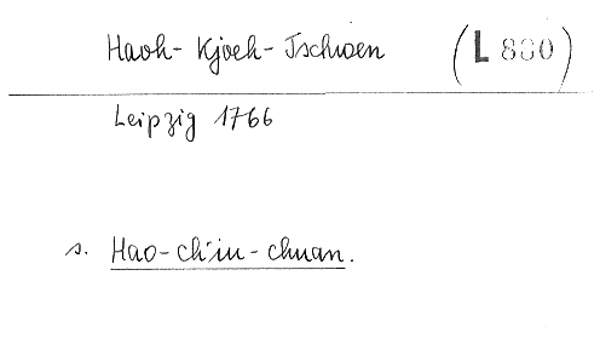 Haoh-Kjoeh-Tschwen (L 830)
Leipzig 1766
s. Hao-ch'iu-chuan.